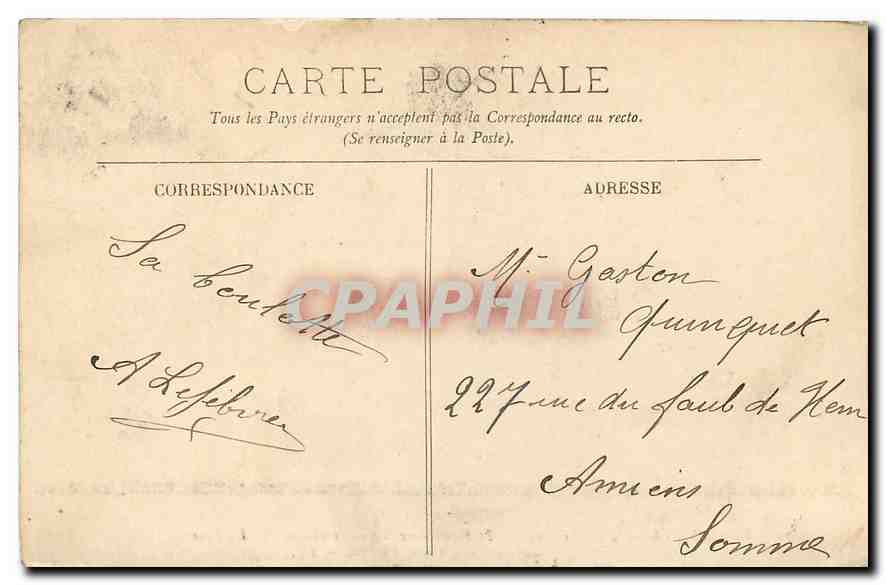 CARTE POSTALE
Tous les Pays étrangers n'acceptent pas la Correspondance au recto.
(Se renseigner à la Poste).
CORRESPONDANCE
ADRESSE
Sa
boulotte
A Lefebvre
Mr Gaston
Quinquet
227 rue du faub de Hem
Amiens
Somme
CPAPHIL